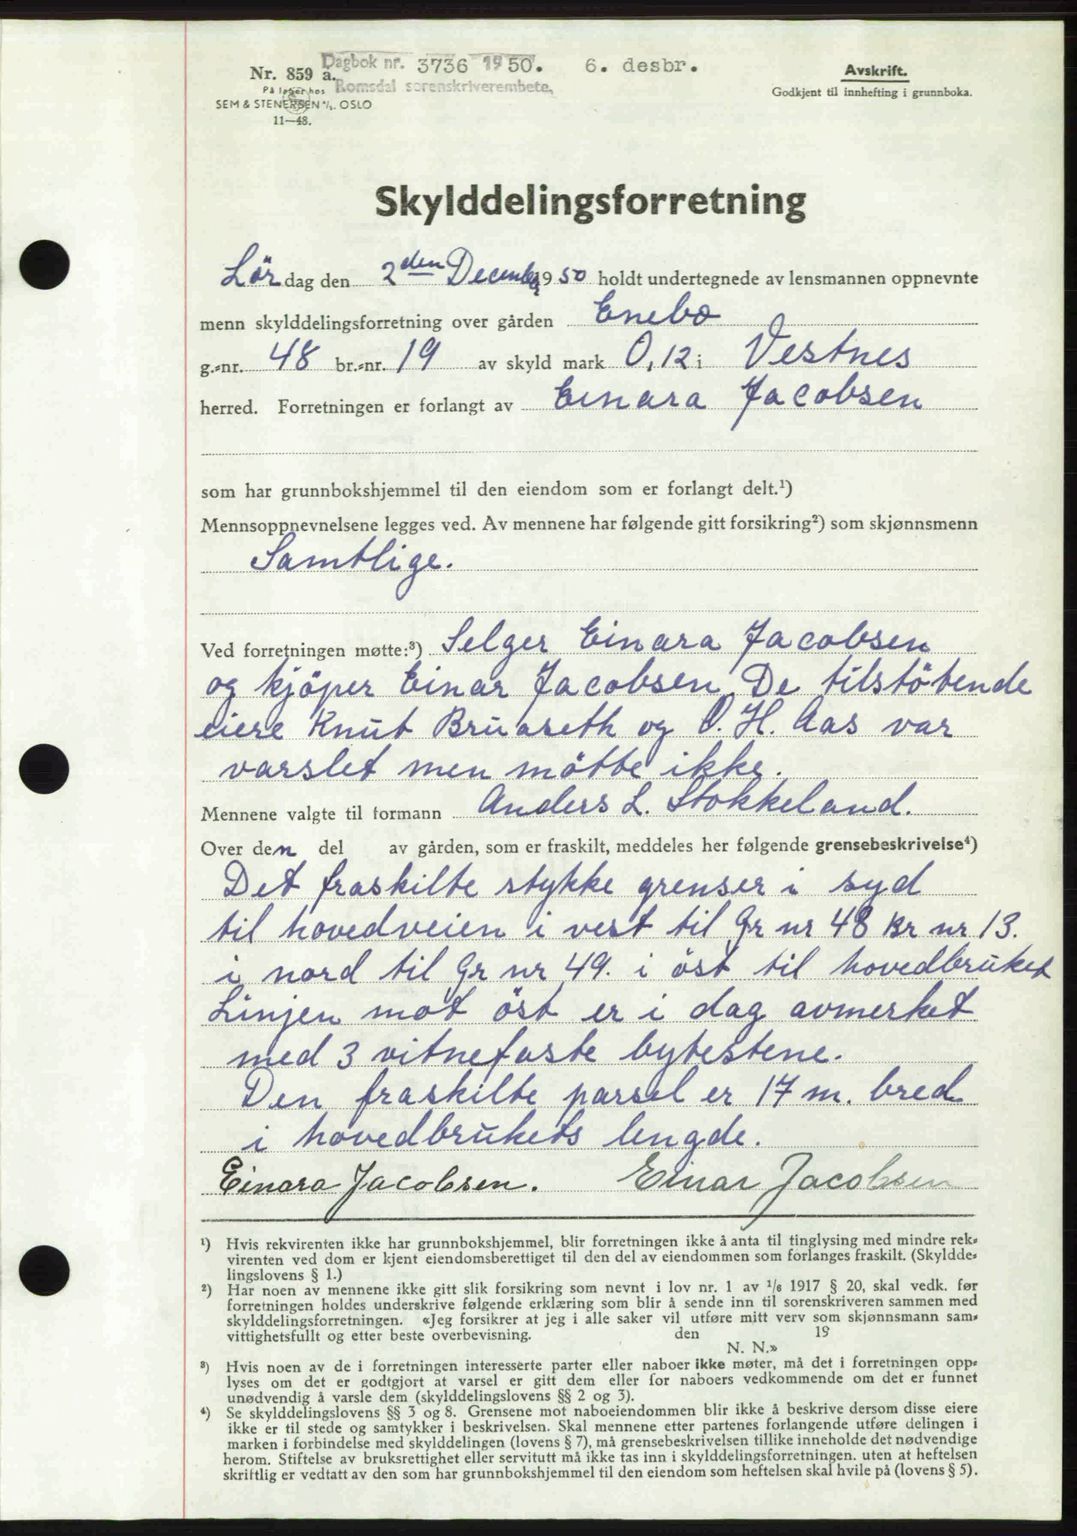 Nr. 859 a.
På lager hos
SEM & STENERSEN A/S. OSLO
11—48.
Dagbok nr. 3736 1950. 6. desbr.
Romsdal sorenskriverembete.
Avskrift.
Godkjent til innhefting i grunnboka.
Skylddelingsforretning
Lördag den 2den December 1950 holdt undertegnede av lensmannen oppnevnte
menn skylddelingsforretning over gården Enebo
g.-nr. 48 br.-nr. 19 av skyld mark 0,12 i Vestnes
herred. Forretningen er forlangt av Einara Jacobsen
som har grunnbokshjemmel til den eiendom som er forlangt delt.¹)
Mennsoppnevnelsene legges ved. Av mennene har følgende gitt forsikring²) som skjønnsmenn
Samtlige.
Ved forretningen møtte:³) Selger Einara Jacobsen
og kjöper Einar Jacobsen. De tilstötende
eiere Knut Bruaseth og O. H. Aas var
varslet men mötte ikke.
Mennene valgte til formann Anders L. Stokkeland.
Over den del av gården, som er fraskilt, meddeles her følgende grensebeskrivelse⁴)
Det fraskilte stykke grenser i syd
til hovedveien i vest til Gr nr 48 Br nr 13.
i nord til Gr nr 49. i öst til hovedbruket
Linjen mot öst er i dag avmerket
med 3 vitnefaste bytestene.
Den fraskilte parsel er 17 m. bred
i hovedbrukets lengde.
Einara Jacobsen. Einar Jacobsen
¹) Hvis rekvirenten ikke har grunnbokshjemmel, blir forretningen ikke å anta til tinglysing med mindre rek-
virenten ved dom er kjent eiendomsberettiget til den del av eiendommen som forlanges fraskilt. (Skyldde-
lingslovens § 1.)
²) Har noen av mennene ikke gitt slik forsikring som nevnt i lov nr. 1 av 1/6 1917 § 20, skal vedk. før
forretningen holdes underskrive følgende erklæring som blir å sende inn til sorenskriveren sammen med
skylddelingsforretningen. «Jeg forsikrer at jeg i alle saker vil utføre mitt verv som skjønnsmann sam-
vittighetsfullt og etter beste overbevisning. den 19
N. N.»
³) Hvis noen av de i forretningen interesserte parter eller naboer ikke møter, må det i forretningen opp-
lyses om det er godtgjort at varsel er gitt dem eller for naboers vedkommende om det er funnet
unødvendig å varsle dem (skylddelingslovens §§ 2 og 3).
⁴) Se skylddelingslovens §§ 3 og 8. Grensene mot naboeiendommen blir ikke å beskrive dersom disse eiere
ikke er til stede og samtykker i beskrivelsen. Skal mennene etter partenes forlangende utføre delingen i
marken i forbindelse med skylddelingen (lovens § 7), må grensebeskrivelsen tillike inneholde det nødvendige
herom. Stiftelse av bruksrettighet eller servitutt må ikke tas inn i skylddelingsforretningen, uten at heftelsen
skriftlig er vedtatt av den som har grunnbokshjemmel til den eiendom som heftelsen skal hvile på (lovens § 5).